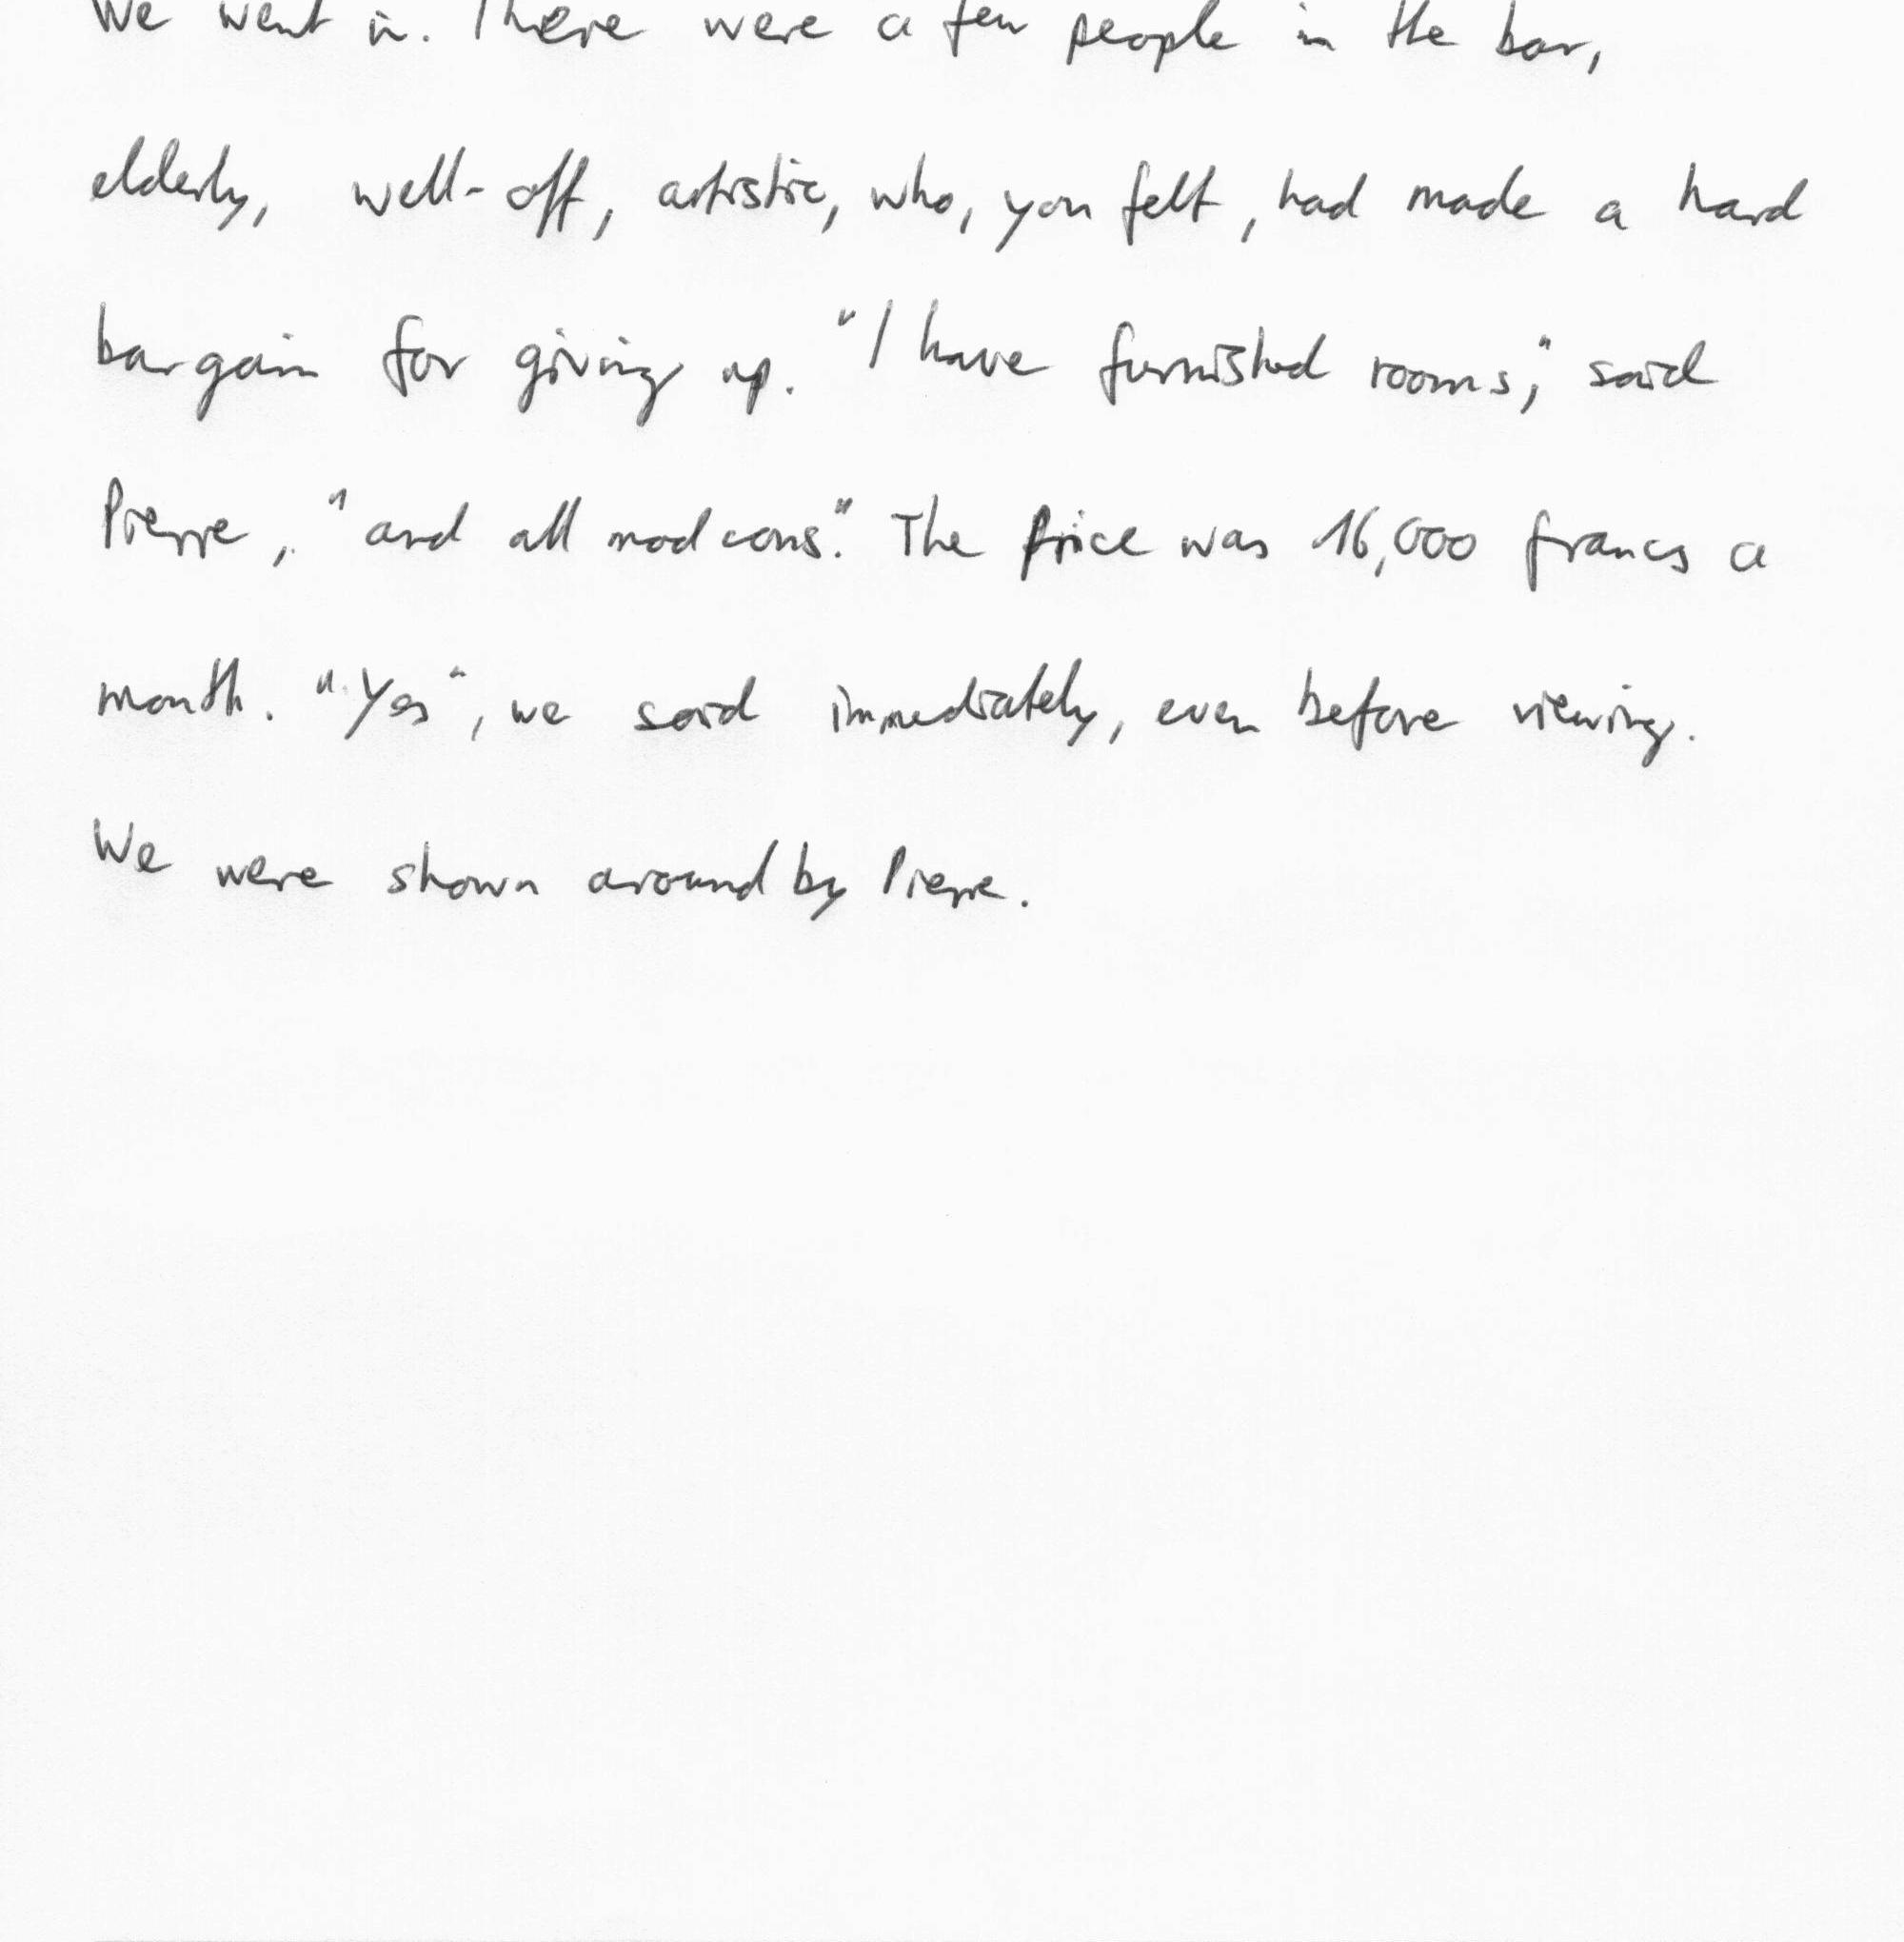 We went in. There were a few people in the bar,
elderly, well-off, artistic, who, you felt, had made a hard
bargain for giving up. "I have furnished rooms," said
Pierre, "and all mod cons". The price was 16,000 francs a
month. "Yes", we said immediately, even before viewing.
We were shown around by Pierre.